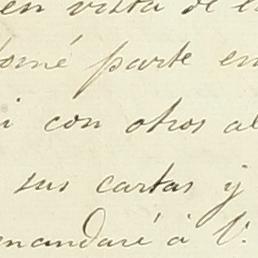 en vista de l
tomé parte en
i con otros al
sus cartas y
mandaré á V.